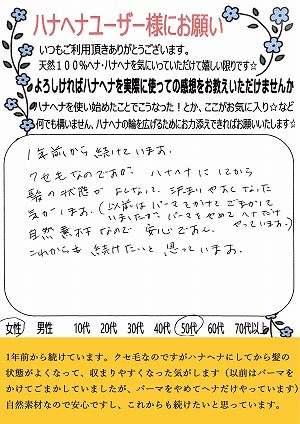 ハナヘナユーザー様にお願い
いつもご利用頂きありがとうございます。
天然100%ヘナ・ハナヘナを気にいっていただけて嬉しい限りです☆
よろしければハナヘナを実際に使っての感想をお教えいただけませんか
ハナヘナを使い始めたことでこうなった!とか、ここがお気に入り☆など
何でも構いません、ハナヘナの輪を広げるためにお力添えできればお願いいたします☆
1年前から続けています。
クセ毛なのですが、ハナヘナにしてから
髪の状態がよくなって、収まりやすくなった
気がします。(以前はパーマをかけてごまかして
いましたが、パーマをやめてヘナだけ
やっています。)
自然素材なので安心ですし、
これからも続けたいと思っています。
女性 男性 10代 20代 30代 40代 50代 60代 70代以上
1年前から続けています。クセ毛なのですがハナヘナにしてから髪の
状態がよくなって、収まりやすくなった気がします(以前はパーマを
かけてごまかしていましたが、パーマをやめてヘナだけやっています)
自然素材なので安心ですし、これからも続けたいと思っています。